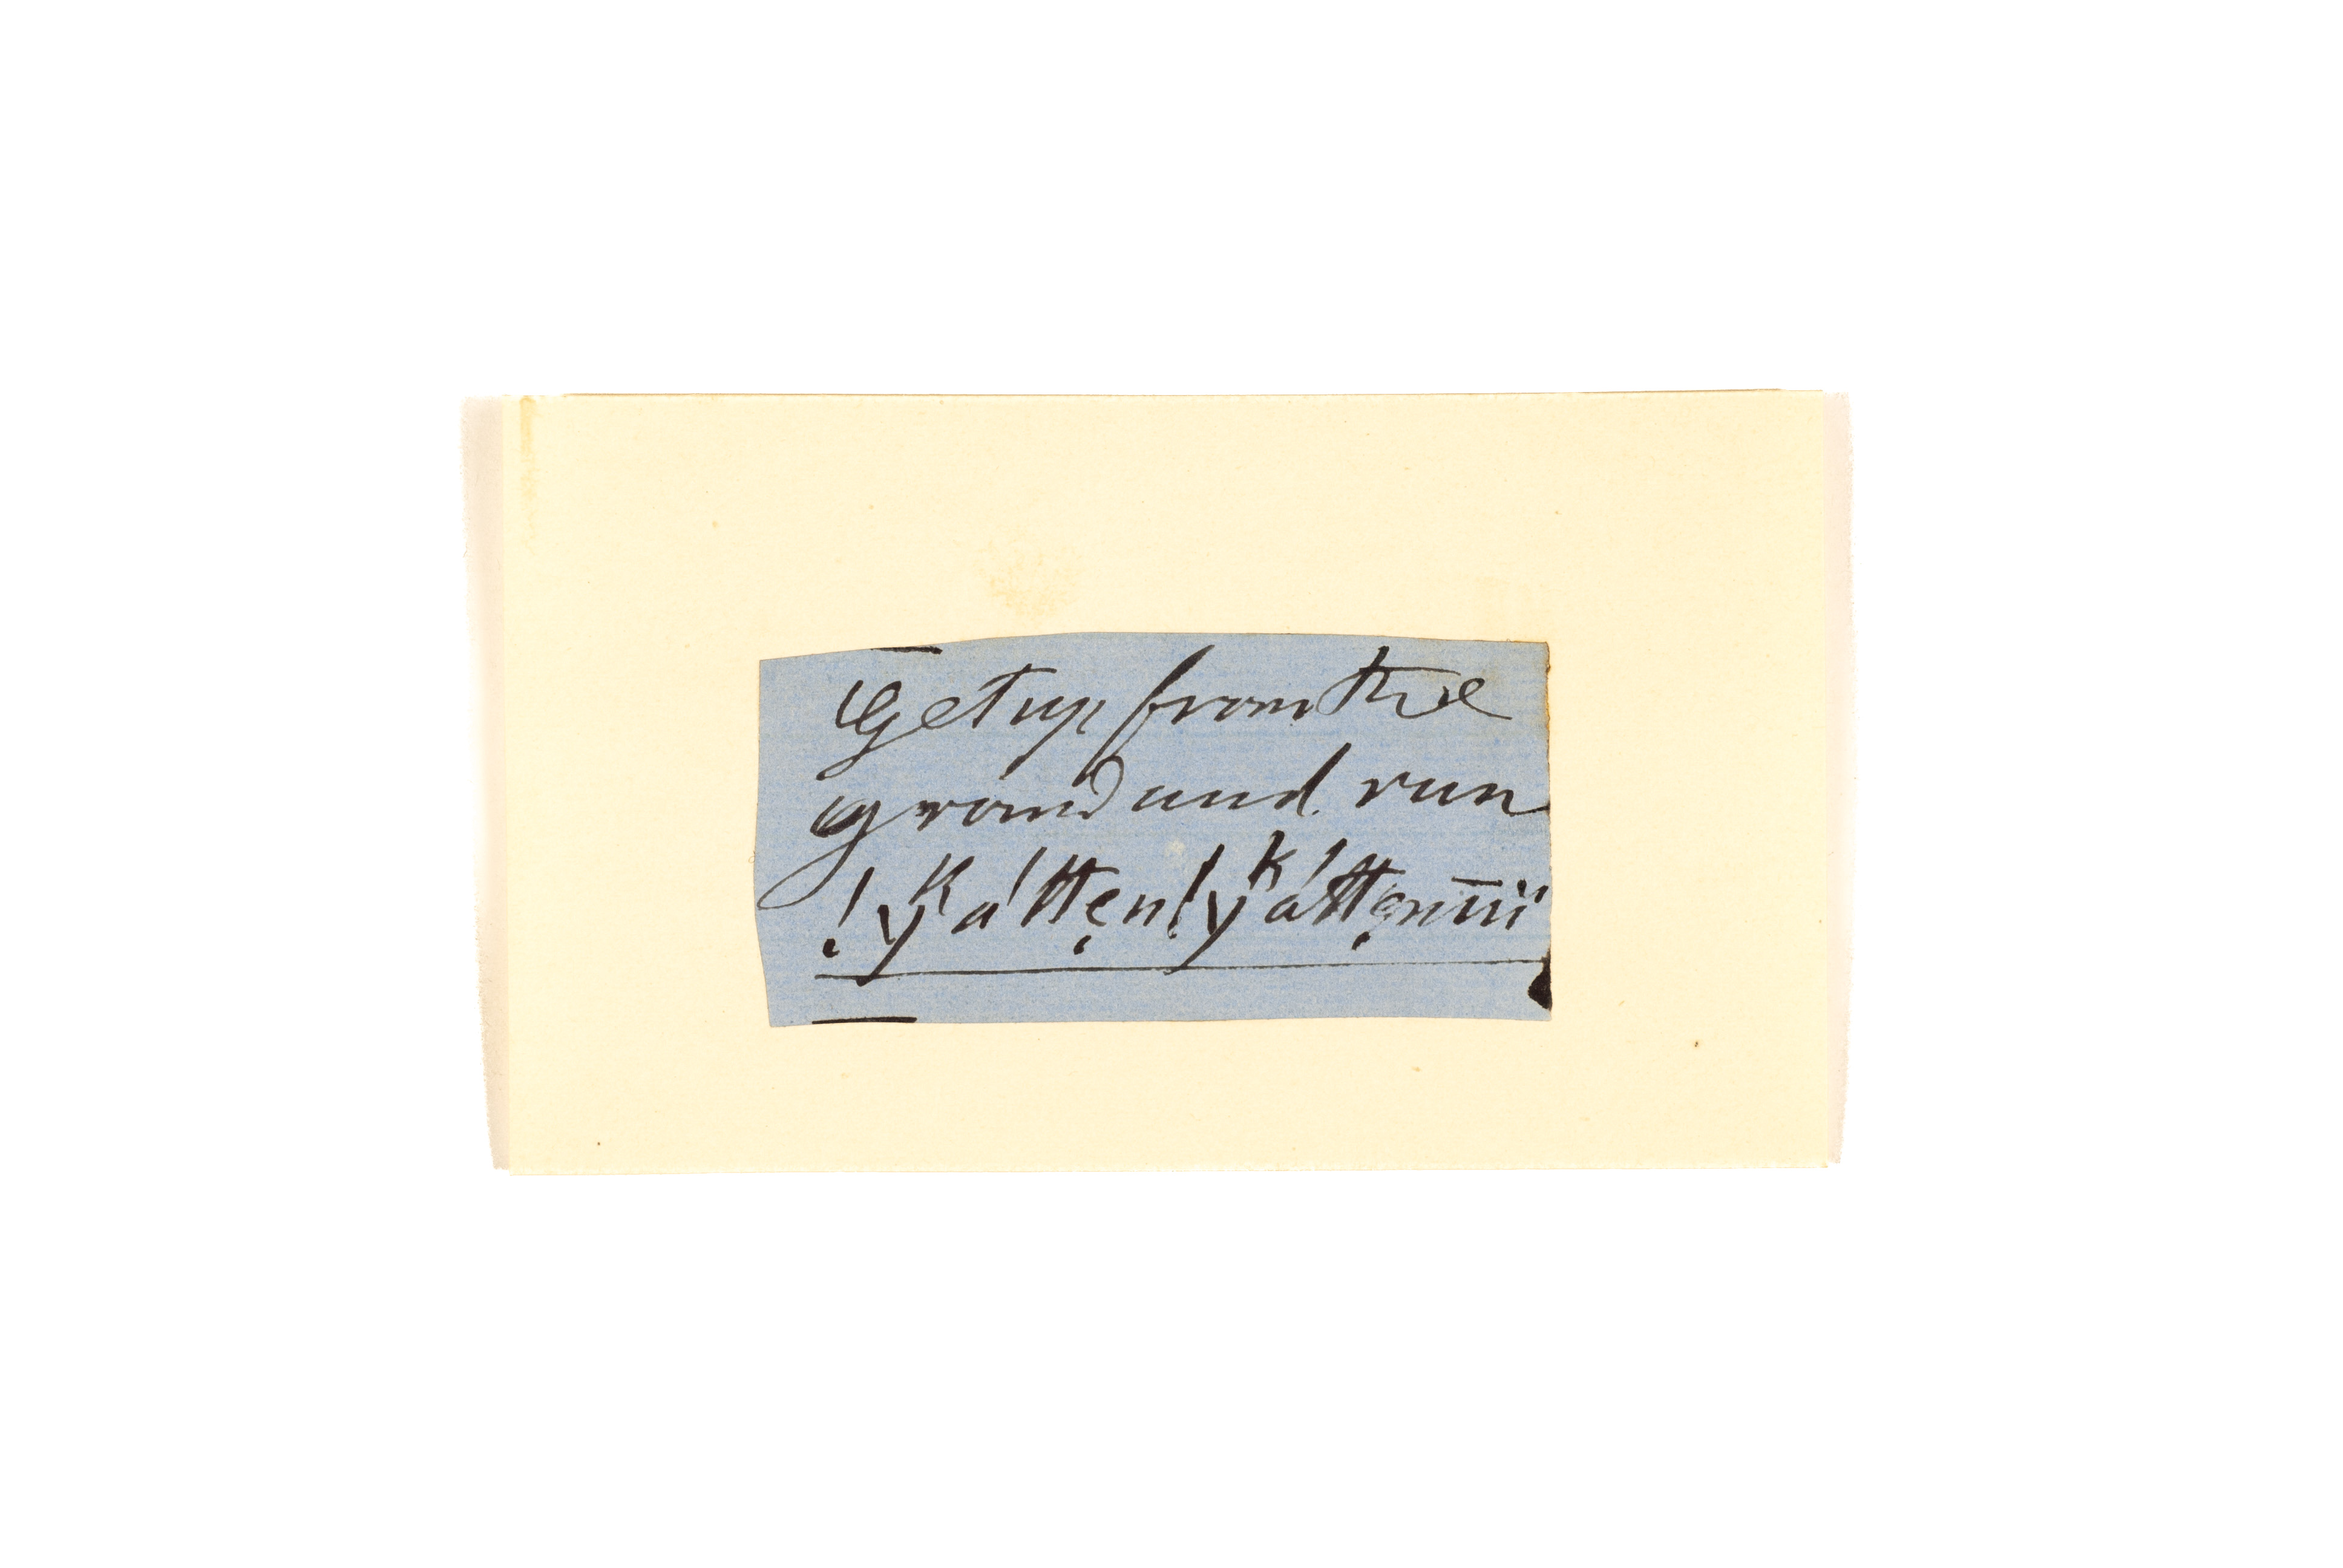 Get up from the
ground and run
!ykáttẹn!ykáttẹnīī